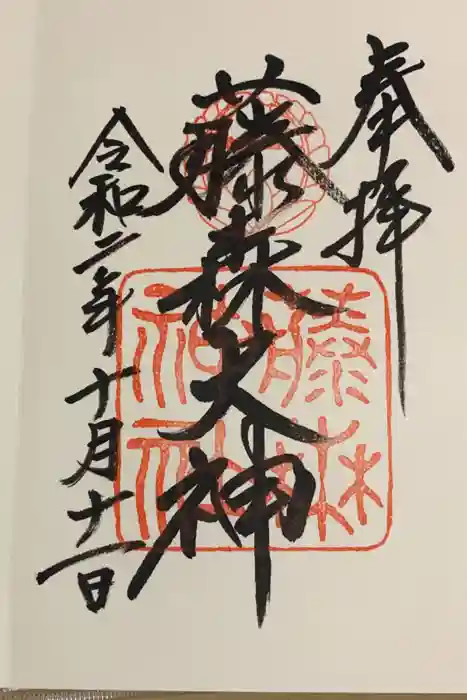 奉拝
藤森大神
令和二年十月十一日
藤森神社